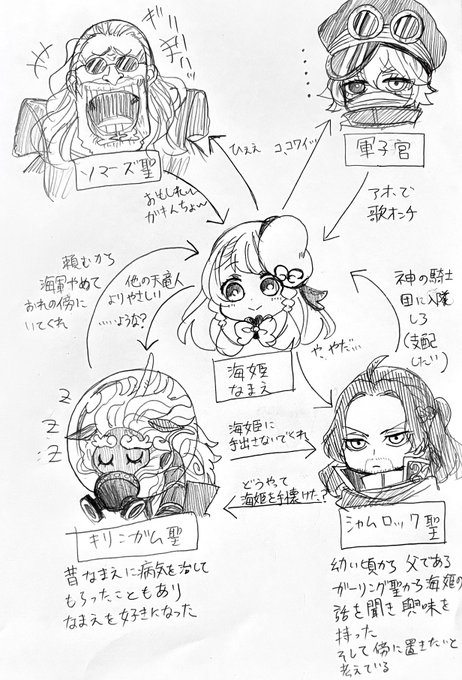 ソマーズ聖
軍子宮
ひぇぇ
コ、コワイッ
おもしれー
がきんちょー
アホで
歌オンチ
頼むから
海軍やめて
おれの傍に
いてくれ
他の天竜人
よりやさしい
……ような?
海姫
なまえ
神の騎士
団に入隊
しろ
(支配
したい)
や、やだ…
z
z
z
海姫に
手出さないでくれ
どうやって
海姫を手懐けた?
キリンガム聖
シャムロック聖
昔なまえに病気を治して
もらったこともあり
なまえを好きになった
幼い頃から父である
ガーリング聖から海姫の
話を聞き興味を
持った
そして傍に置きたいと
考えている